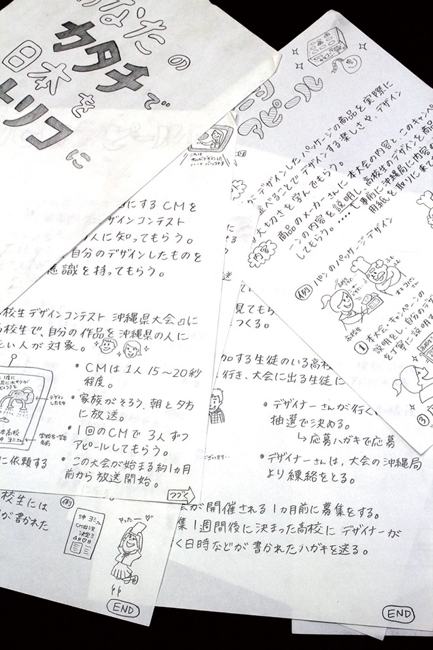 あなたの
カタチで
日本を
トリコに
にする CMを
デザインコンテスト
人に知ってもらう。
自分のデザインしたものを
意識を持ってもらう。
校生デザインコンテスト 沖縄県大会』に
高校生で、自分の作品を沖縄県の人に
い人が対象。
・CMは1人15〜20秒
程度。
・家族がそろう、朝と夕方
に放送。
・1回のCMで3人ずつ
アピールしてもらう。
・この大会が始まる約1カ月
前から放送開始。
に依頼する
つづく
アピール
デザインしたパッケージの商品を実際に
並べることでデザインする楽しさや、デザイン
大切さを学んでもらう。
内容
商品のメーカーさんに本大会の内容と、このキャンペ
ーンの内容を説明し、高校生のデザインを商品
してもらう。
例 パンのパッケージデザイン
①本大会、キャンペーンの
見てもら
つくる。
加する生徒のいる高校
行き、大会に出る生徒に
・デザイナーさんが行く
抽選で決める。
↳応募ハガキで応募
・デザイナーさんは、大会の沖縄局
より連絡をとる。
会が開催される1カ月前に募集をする。
集1週間後に決まった高校にデザイナーが
く日時などが書かれたハガキを送る。
END
校生には
が書かれた
例
END